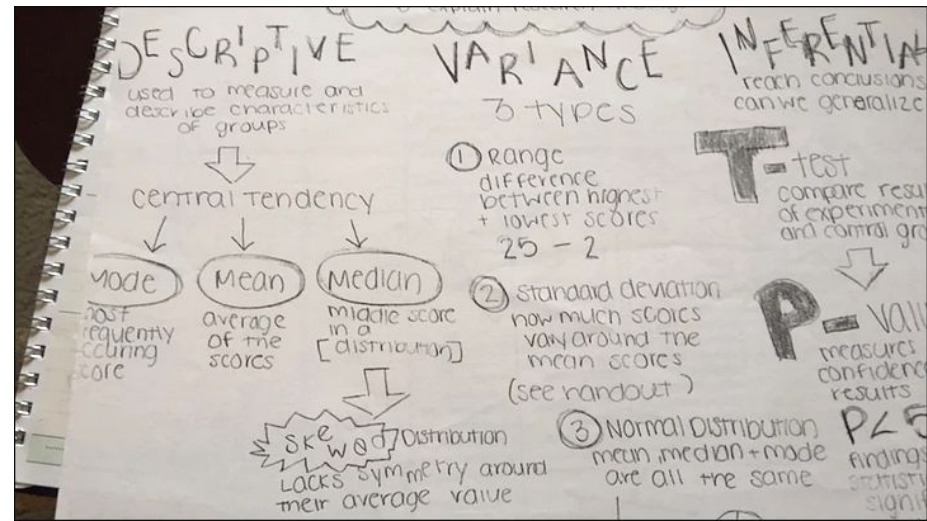 DESCRIPTIVE
used to measure and
describe characteristics
of groups
Central Tendency
Mode
most
frequently
occuring
score
Mean
average
of the
scores
Median
middle score
in a
[distribution]
Skewed Distribution
Lacks symmetry around
their average value
VARIANCE
3 types
1 Range
difference
between highest
+ lowest scores
25 - 2
2 Standard deviation
how much scores
vary around the
mean scores
(see handout)
3 Normal Distribution
mean, median + mode
are all the same
INFERENTIAL
reach conclusions
can we generalize
T-test
compare resu
of experiment
and control gro
P-valu
measures
confidence
results
P<5
findings
statisti
signif